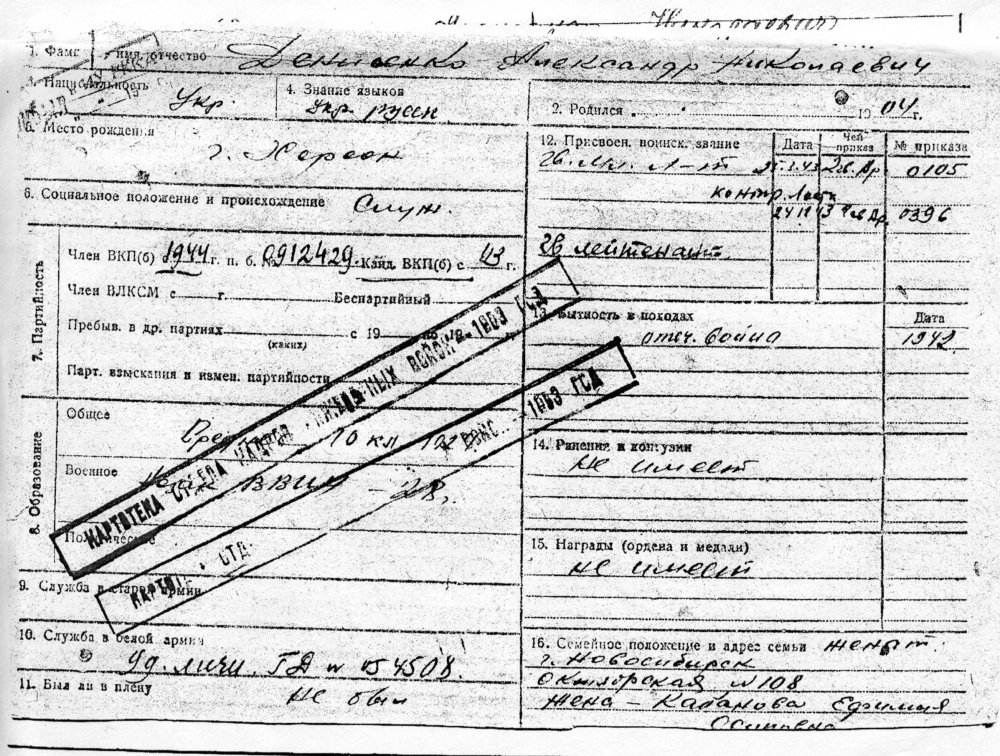 1. Фами имя, отчество Денисенко Александр Николаевич
3. Национальность Укр.
4. Знание языков Укр. русск
2. Родился 1904 г.
5. Место рождения
г. Херсон
6. Социальное положение и происхождение Служ.
7. Партийность
Член ВКП(б) с 1944 г. п. б. № 0912429. Канд. ВКП(б) с 43 г.
Член ВЛКСМ с г. Беспартийный
Пребыв. в др. партиях с 19 по 19
(каких)
Парт. взыскания и измен. партийности
8. Образование
Общее
10 кл
Военное
28.
9. Служба в старой армии
10. Служба в белой армии
Уд. личн. ГД № 054508.
11. Был ли в плену не был
12. Присвоен. воинск. звание Дата Чей приказ № приказа
Гв. Мл. Л-т 43 0105
24 43 0396
Гв лейтенант.
13. Бытность в походах Дата
отеч. война 1942
14. Ранения и контузии
не имеет
15. Награды (ордена и медали)
не имеет
16. Семейное положение и адрес семьи женат.
г. Новосибирск
Октябрская № 108
Жена – Ефимия
Осиповна
КАРТОТЕКА ОТДЕЛА КАДРОВ ВОЙСК 1953 ГСД
1953 ГСД